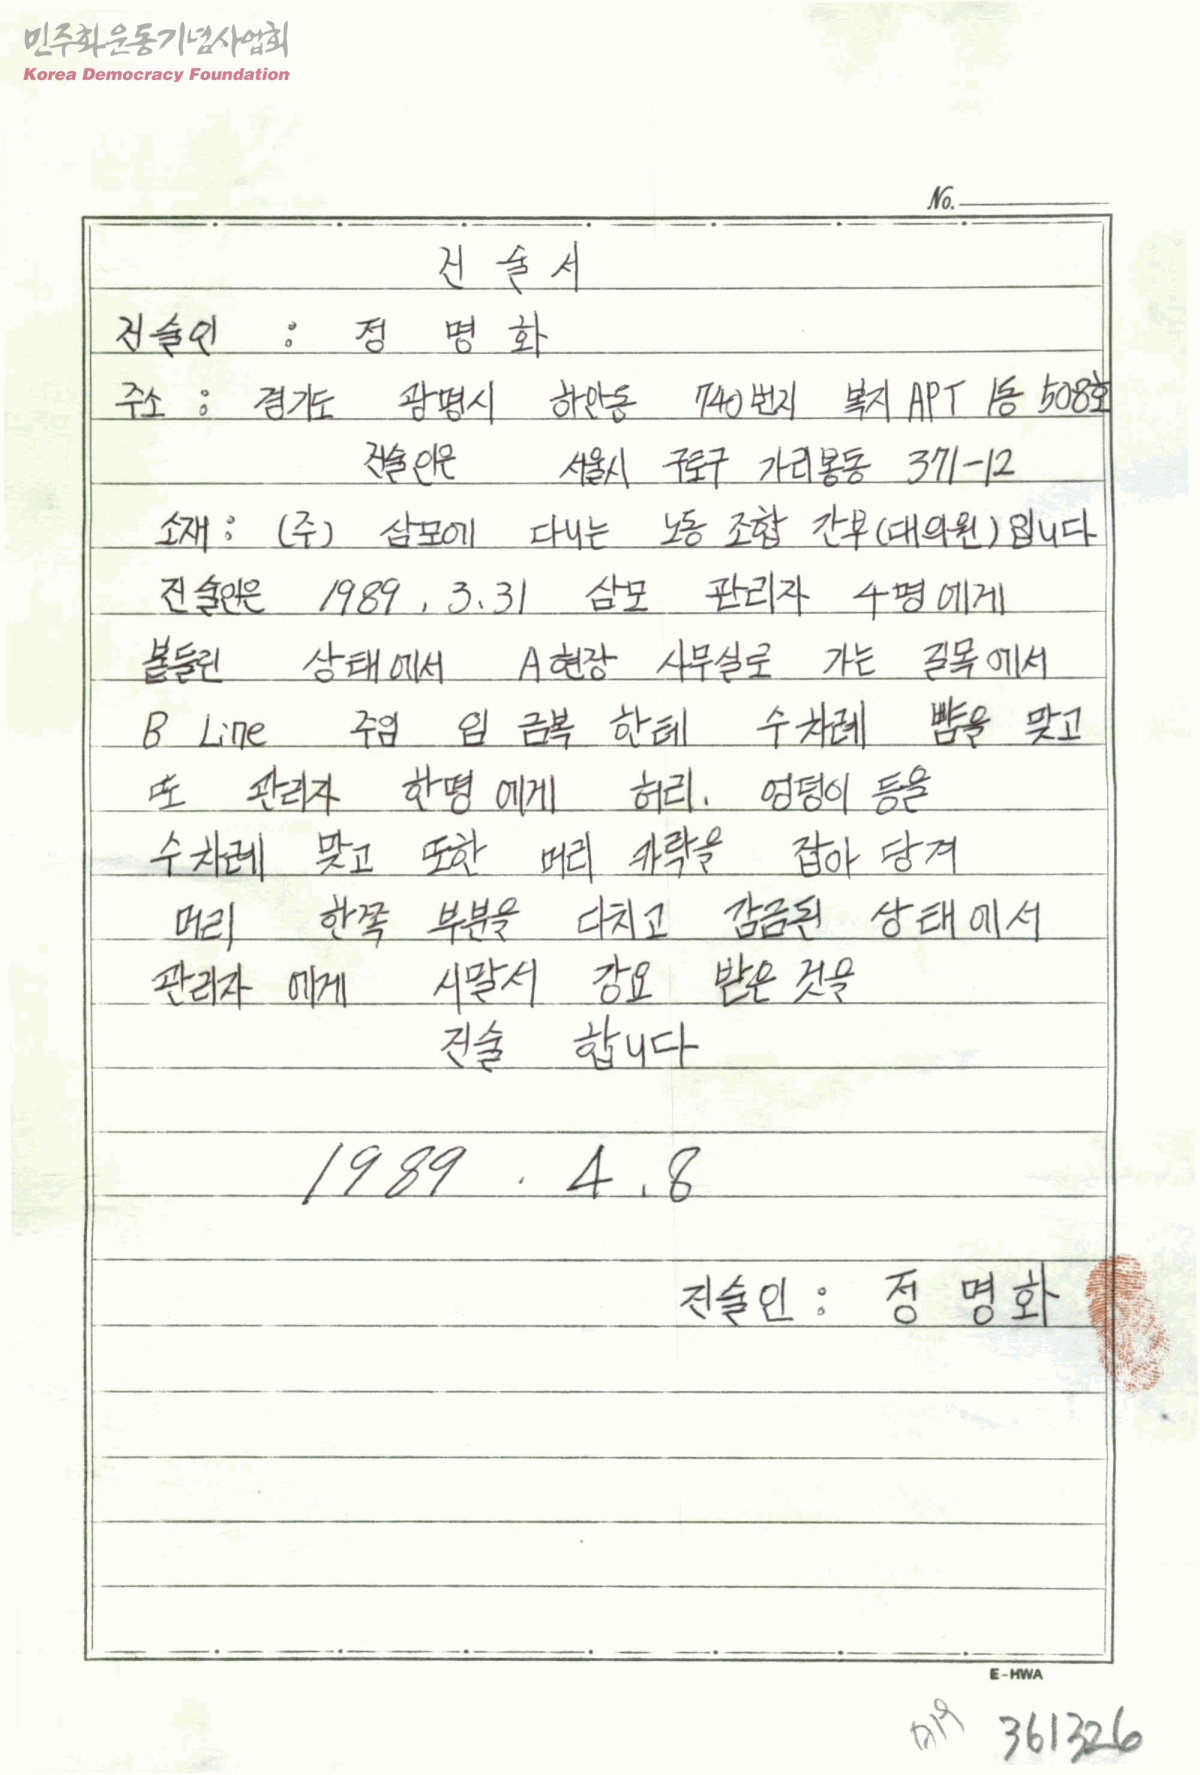 민주화운동기념사업회
Korea Democracy Foundation
No.
진 술 서
진술인 : 정 명 화
주소 : 경기도 광명시 하안동 740번지 복지 APT 1동 508호
진술인은 서울시 구로구 가리봉동 371-12
소재 : (주) 삼모에 다니는 노동 조합 간부(대의원)입니다
진술인은 1989. 3. 31 삼모 관리자 4명에게
붙들린 상태에서 A현장 사무실로 가는 길목에서
B Line 주임 임 금복 한테 수차례 뺨을 맞고
또 관리자 한명에게 허리. 엉덩이 등을
수차례 맞고 또한 머리 카락을 잡아 당겨
머리 한쪽 부분을 다치고 감금된 상태에서
관리자 에게 시말서 강요 받은 것을
진술 합니다
1989 . 4 . 8
진술인 : 정 명 화
E-HWA
361326